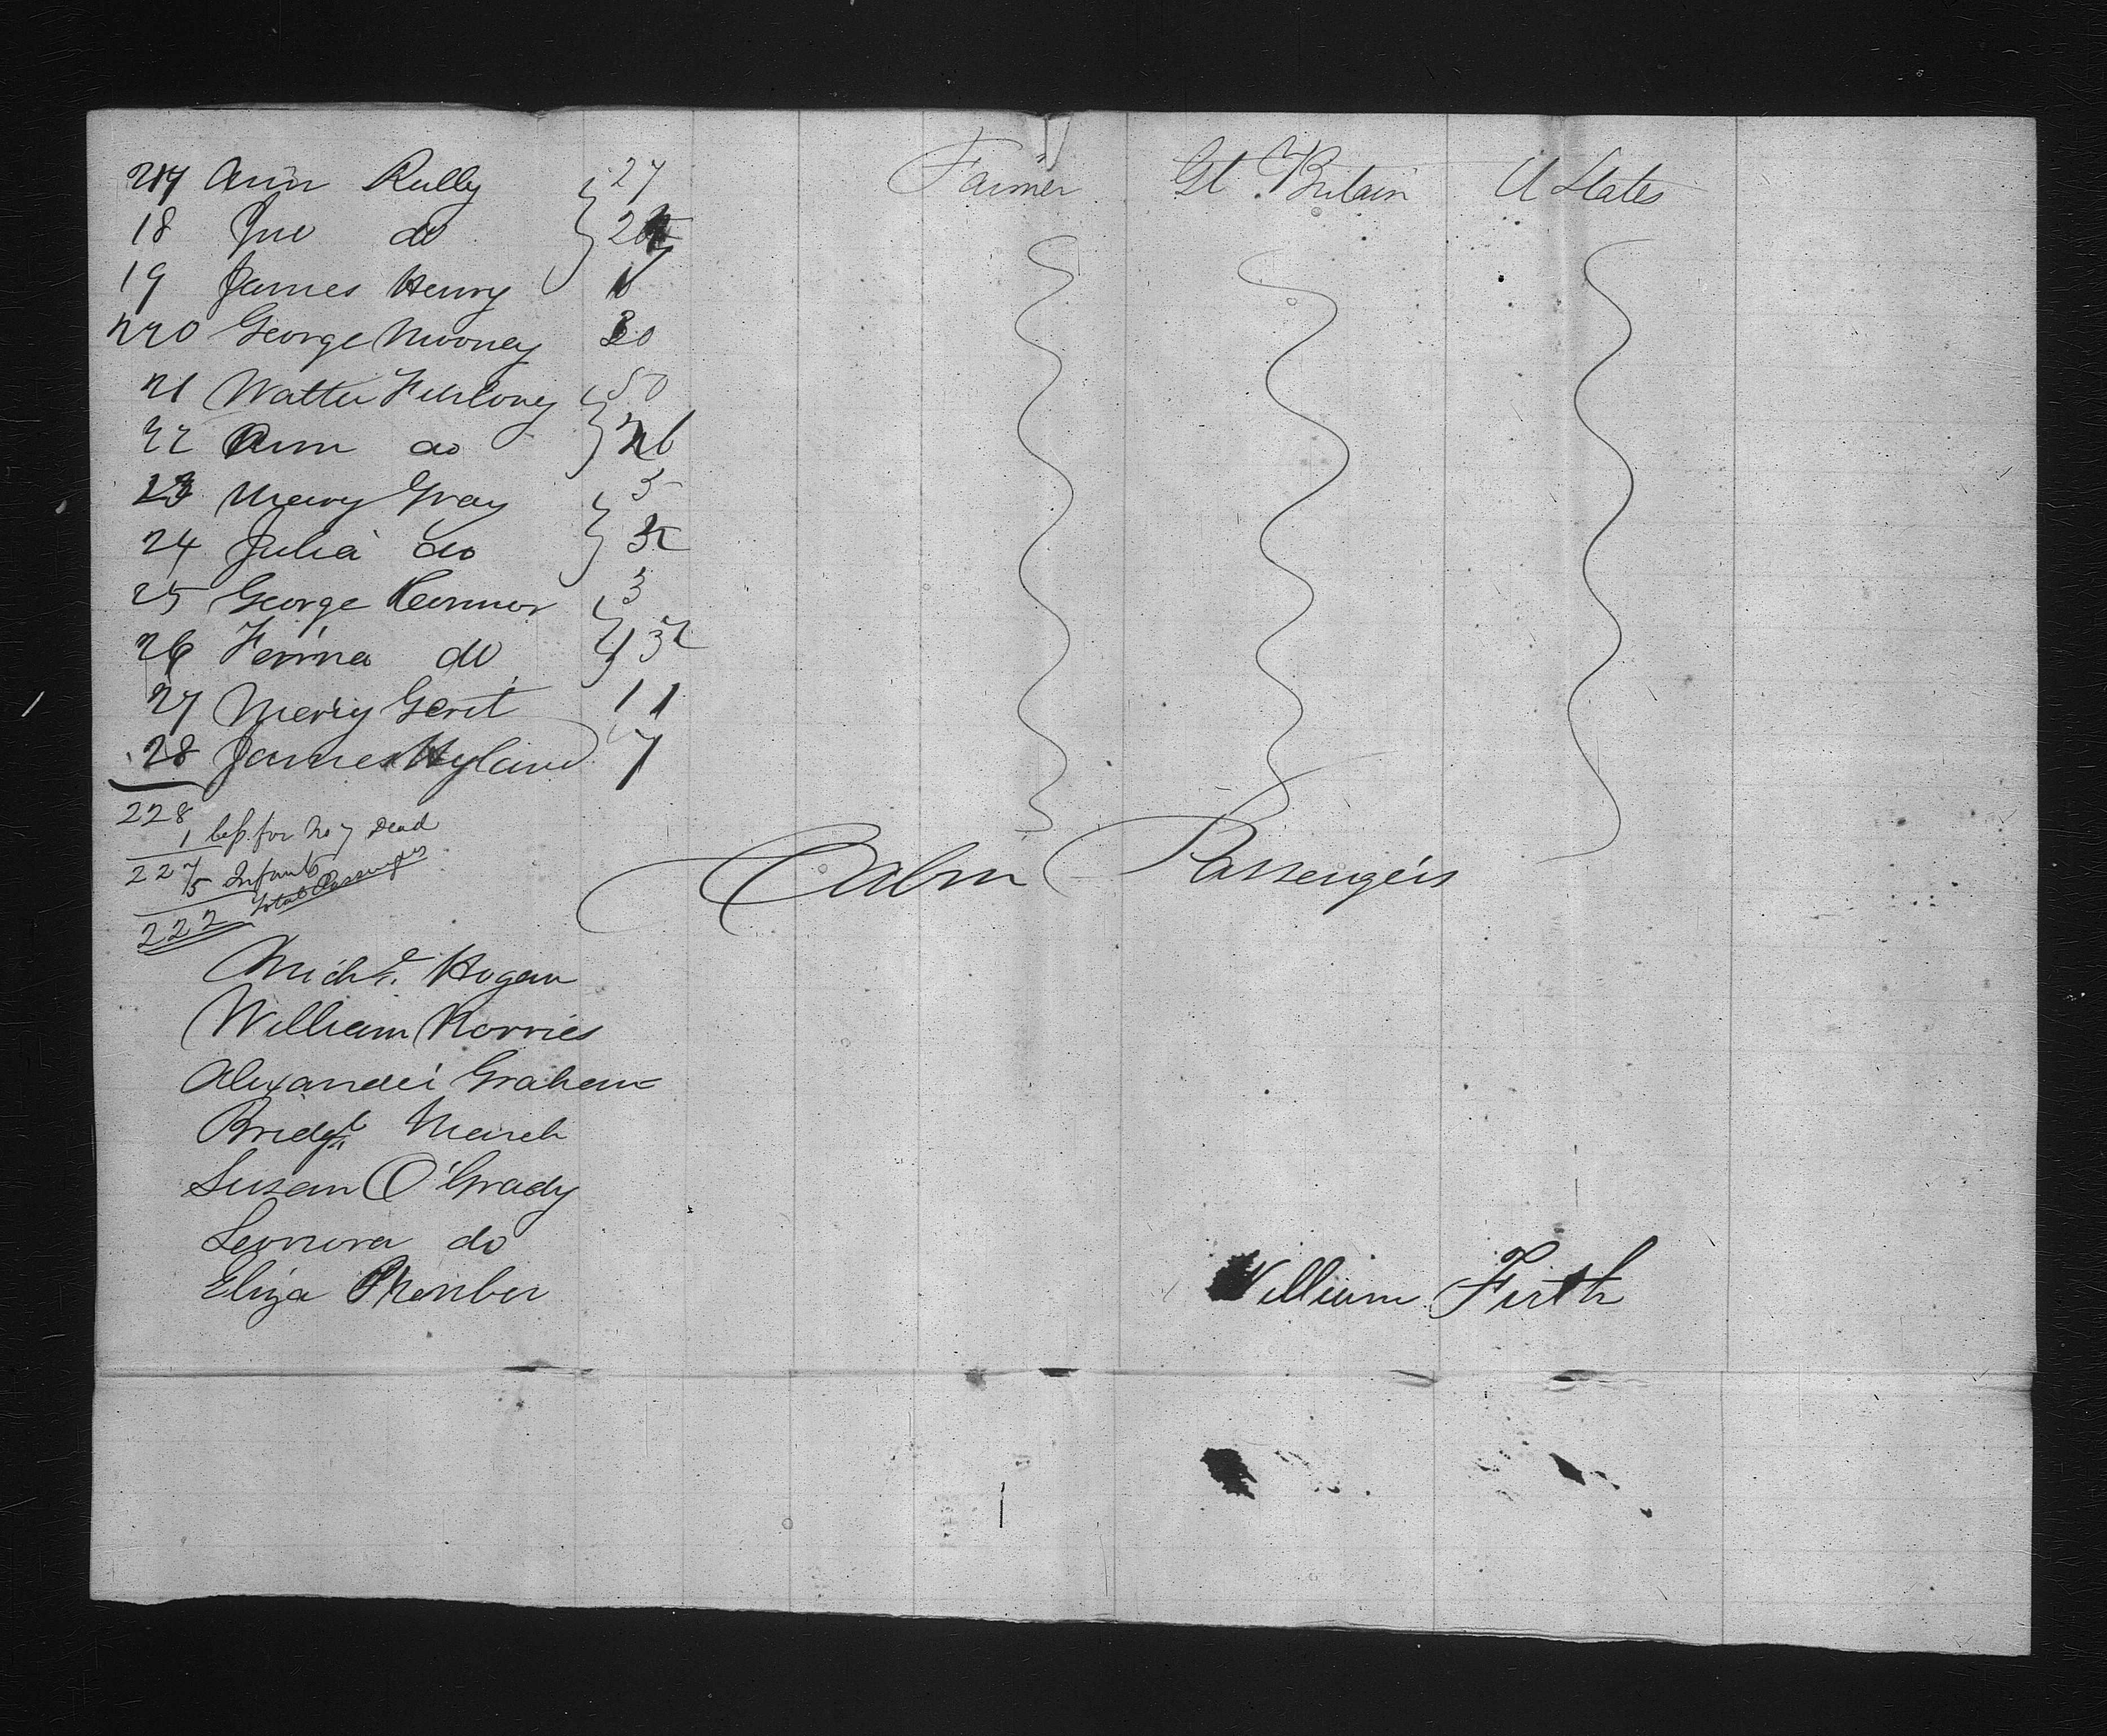 217 Ann Rully 27 Farmer Gt Britain U States
18 Jno do
19 James Henry
220 George Mooney 30
21 Walter Furlong 50
22 Ann do 26
23 Mary Gray 5
24 Julia do 32
25 George Connor 3
26 do 32
27 Mary Gent 11
28 James Hyland 7
228
1 less for No 7 Dead
227
5 Infants
222 total Passengers
Cabin Passengers
Michl. Hogan
William Norries
Alexander Graham
Bridgt March
Susan O'Grady
Leonora do
Eliza
William Firth